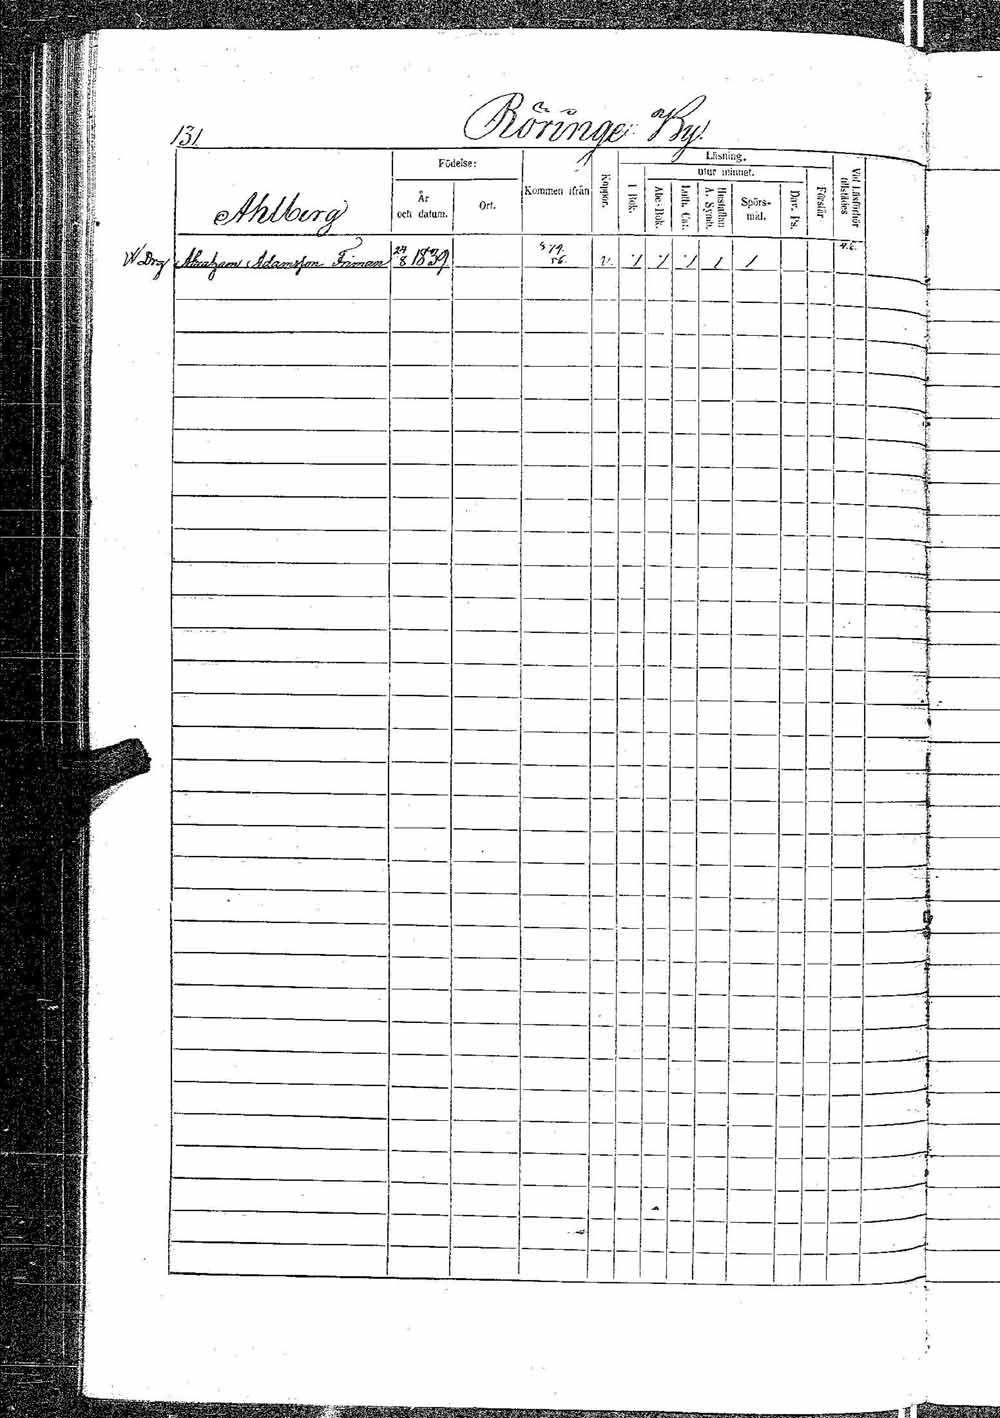 131.
Röringe By.
Ahlberg
Födelse:
År och datum.
Ort.
Kommen ifrån
Koppor.
Läsning,
utur minnet.
I Bok.
Abc-Bok.
Luth. Cat.
Hustaflan A. Symb.
Spörs-mål.
Dav. Ps.
Förstår
Vid Läsförhör tillstädes
Drg Abraham Adamsson Friman 24/8 1839 v. 1 1 1 1 1